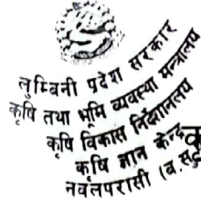 लुम्बिनी प्रदेश सरकार
कृषि तथा भूमि व्यवस्था मन्त्रालय
कृषि विकास निर्देशनालय
कृषि ज्ञान केन्द्र
नवलपरासी (ब.सु.